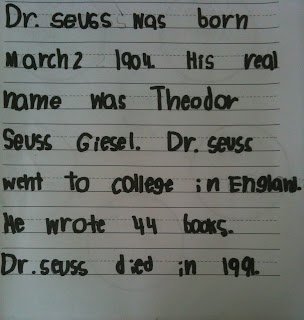 Dr. seuss was born
March 2 1904. His real
name was Theodor
Seuss Giesel. Dr. seuss
went to college in England.
He wrote 44 books.
Dr. seuss died in 1991.